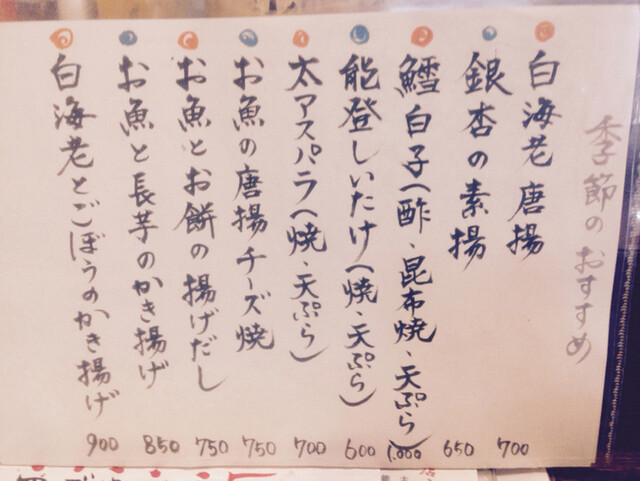 季節のおすすめ
白海老唐揚 700
銀杏の素揚 650
鱈白子(酢・昆布焼・天ぷら) 1,000
能登しいたけ(焼・天ぷら) 600
太アスパラ(焼・天ぷら) 700
お魚の唐揚チーズ焼 750
お魚とお餅の揚げだし 750
お魚と長芋のかき揚げ 850
白海老とごぼうのかき揚げ 900